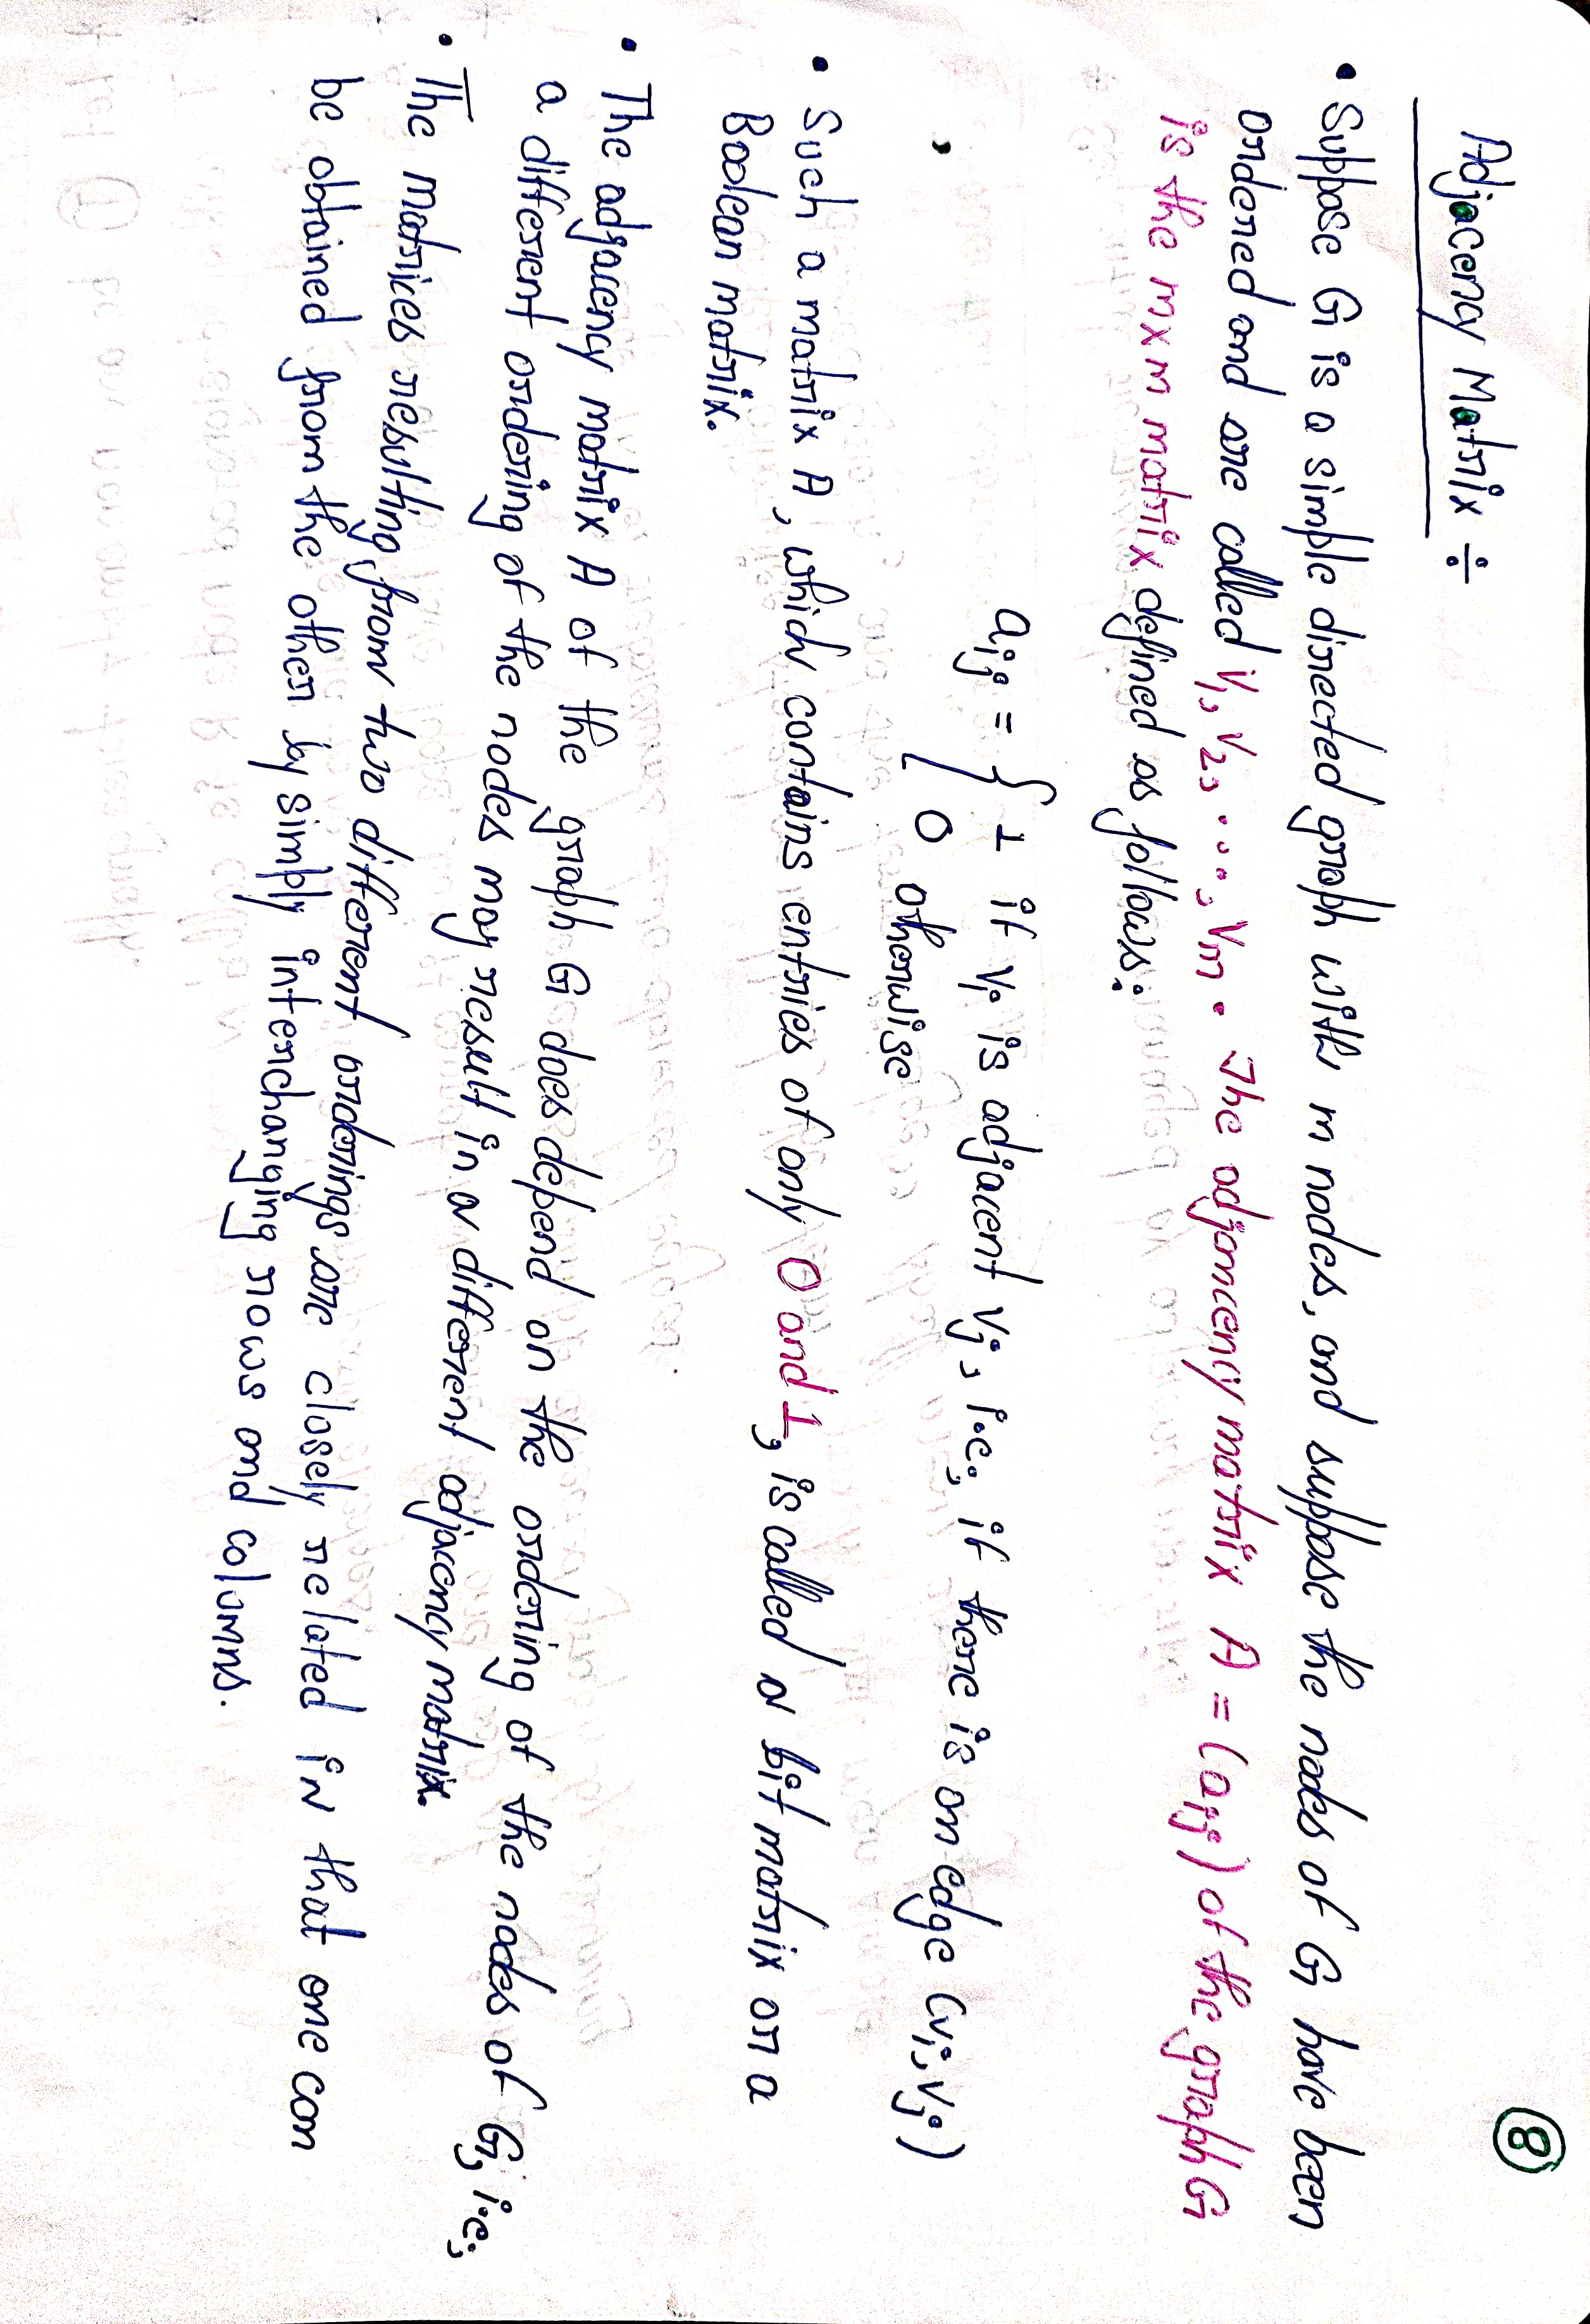 8
Adjacency Matrix ÷
• Suppose G is a simple directed graph with m nodes, and suppose the nodes of G have been
ordered and are called V₁, V₂, ..., Vm. The adjacency matrix A = (aij) of the graph G
is the m x m matrix defined as follows:
aij = { 1 if Vi is adjacent Vj, i.e; if there is an edge (vi, vj)
0 otherwise
• Such a matrix A, which contains entries of only 0 and 1, is called a bit matrix or a
Boolean matrix.
• The adjacency matrix A of the graph G does depend on the ordering of the nodes of G, i.e;
a different ordering of the nodes may result in a different adjacency matrix.
• The matrices resulting from two different orderings are closely related in that one can
be obtained from the other by simply interchanging rows and columns.